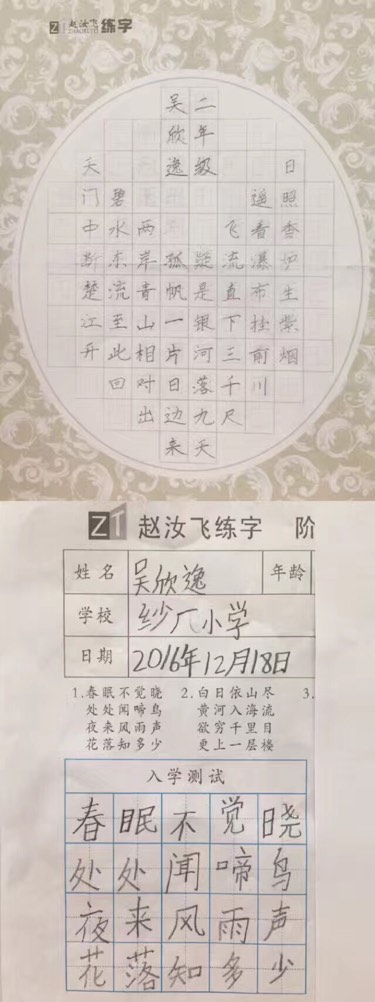 赵汝飞练字
ZHAORUFEI
日照香炉生紫烟
遥看瀑布挂前川
飞流直下三千尺
二年级
疑是银河落九天
吴欣逸
天门中断楚江开
碧水东流至此回
两岸青山相对出
孤帆一片日边来
赵汝飞练字 阶
姓名 吴欣逸 年龄
学校 纱厂小学
日期 2016年12月18日
1.春眠不觉晓
处处闻啼鸟
夜来风雨声
花落知多少
2.白日依山尽
黄河入海流
欲穷千里目
更上一层楼
3.
入学测试
春眠不觉晓
处处闻啼鸟
夜来风雨声
花落知多少